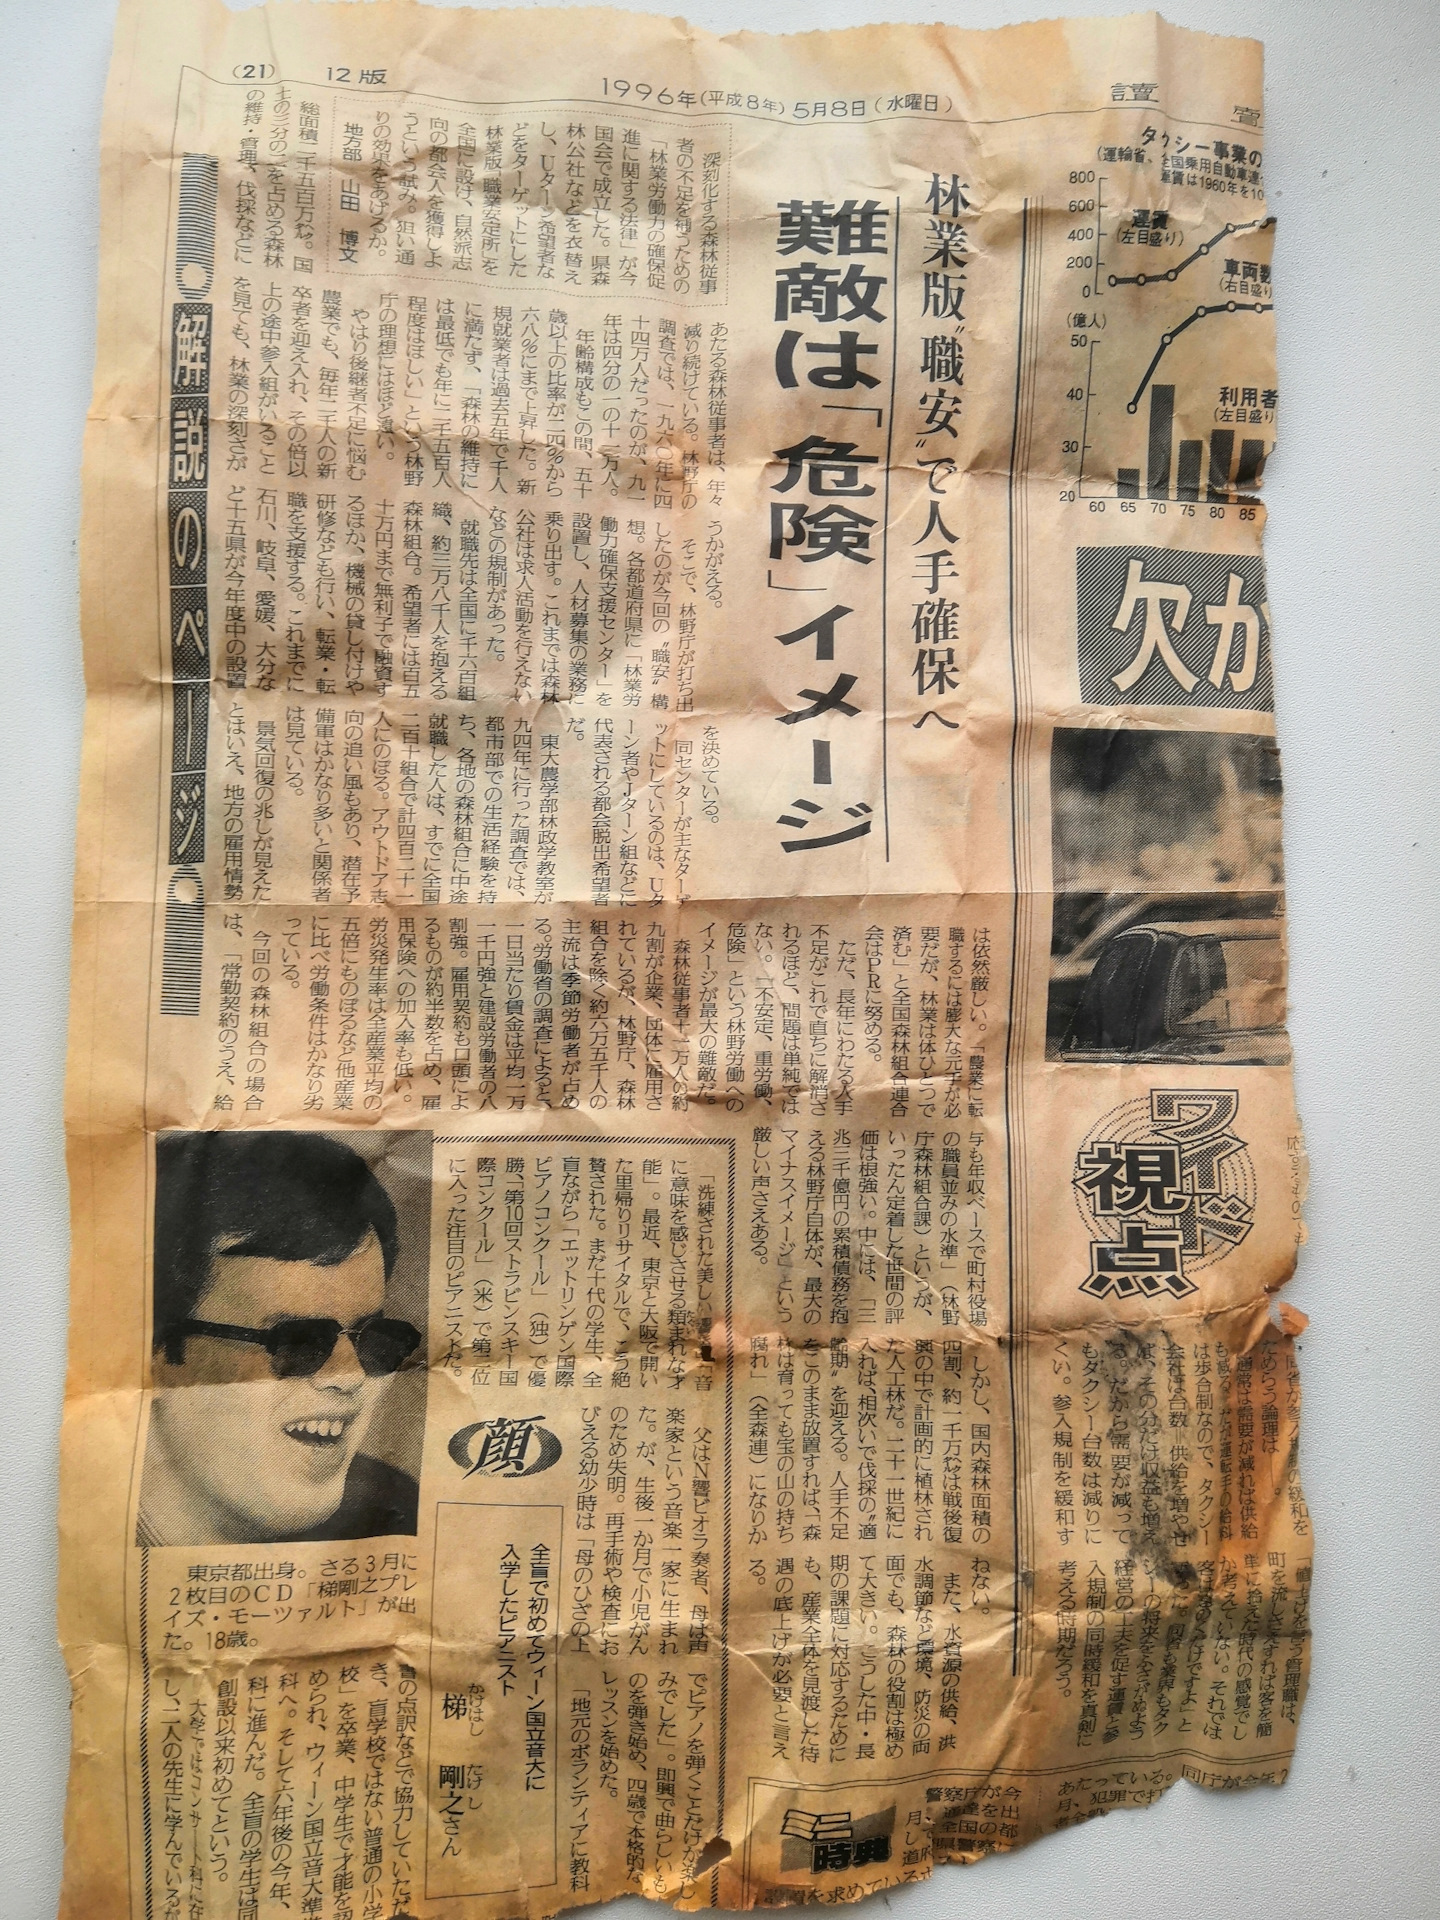 (21)
12版
1996年(平成8年)5月8日(水曜日)
讀
タクシー事業の
(運輸省、全国乗用自動車連
車賃は1960年を10
800
600
400
200
0
運賃
(左目盛り)
車両数
(右目盛り
(億人)
50
40
30
20
利用者
(左目盛り
60 65 70 75 80 85
欠か
ワイド
視点
林業版〝職安〟で人手確保へ
難敵は「危険」イメージ
深刻化する森林従事
者の不足を補うための
「林業労働力の確保促
進に関する法律」が今
国会で成立した。県森
林公社などを衣替え
し、Uターン希望者な
どをターゲットにした
林業版「職業安定所」を
全国に設け、自然派志
向の都会人を獲得しよ
うという試み。狙い通
りの効果をあげるか。
地方部 山田 博文
総面積二千五百万㌶。国
土の三分の二を占める森林
の維持・管理、伐採などに
あたる森林従事者は、年々
減り続けている。林野庁の
調査では、一九六〇年に四
十四万人だったのが、九一
年は四分の一の十一万人。
年齢構成もこの間、五十
歳以上の比率が二四%から
六八%にまで上昇した。新
規就業者は過去五年で千人
に満たず、「森林の維持に
は最低でも年に二千五百人
程度はほしい」という林野
庁の理想にはほど遠い。
やはり後継者不足に悩む
農業でも、毎年二千人の新
卒者を迎え入れ、その倍以
上の途中参入組がいること
を見ても、林業の深刻さが
うかがえる。
そこで、林野庁が打ち出
したのが今回の〝職安〟構
想。各都道府県に「林業労
働力確保支援センター」を
設置し、人材募集の業務に
乗り出す。これまでは森林
公社は求人活動を行えない
などの規制があった。
就職先は全国に千六百組
織、約三万八千人を抱える
森林組合。希望者には百五
十万円まで無利子で融資す
るほか、機械の貸し付けや
研修なども行い、転業・転
職を支援する。これまでに
石川、岐阜、愛媛、大分な
ど十五県が今年度中の設置
を決めている。
同センターが主なターゲ
ットにしているのは、Uタ
ーン者やJターン組などに
代表される都会脱出希望者
だ。
東大農学部林政学教室が
九四年に行った調査では、
都市部での生活経験を持
ち、各地の森林組合に中途
就職した人は、すでに全国
二百十組合で計四百二十一
人にのぼる。アウトドア志
向の追い風もあり、潜在予
備軍はかなり多いと関係者
は見ている。
景気回復の兆しが見えた
とはいえ、地方の雇用情勢
は依然厳しい。「農業に転
職するには膨大な元手が必
要だが、林業は体ひとつで
済む」と全国森林組合連合
会はPRに努める。
ただ、長年にわたる人手
不足がこれで直ちに解消さ
れるほど、問題は単純では
ない。「不安定、重労働、
危険」という林野労働への
イメージが最大の難敵だ。
森林従事者十一万人の約
九割が企業、団体に雇用さ
れているが、林野庁、森林
組合を除く約六万五千人の
主流は季節労働者が占め
る。労働省の調査によると、
一日当たり賃金は平均一万
一千円強と建設労働者の八
割強。雇用契約も口頭によ
るものが約半数を占め、雇
用保険への加入率も低い。
労災発生率は全産業平均の
五倍にものぼるなど他産業
に比べ労働条件はかなり劣
っている。
今回の森林組合の場合
は、「常勤契約のうえ、給
与も年収ベースで町村役場
の職員並みの水準」(林野
庁森林組合課)というが、
いったん定着した世間の評
価は根強い。中には、「三
兆三千億円の累積債務を抱
える林野庁自体が、最大の
マイナスイメージ」という
厳しい声さえある。
しかし、国内森林面積の
四割、約一千万㌶は戦後復
興の中で計画的に植林され
た人工林だ。二十一世紀に
入れば、相次いで伐採の〝適
齢期〟を迎える。人手不足
をこのまま放置すれば、「森
林は育っても宝の山の持ち
腐れ」(全森連)になりか
ねない。
また、水資源の供給、洪
水調節など環境、防災の両
面でも、森林の役割は極め
て大きい。こうした中・長
期の課題に対応するために
も、産業全体を見渡した待
遇の底上げが必要と言え
る。
解説のページ
ためらう論理は
「通常は需要が減れば供給
も減る。だが運転手の給料
は歩合制なので、タクシー
会社は台数=供給を増やせ
ば、その分だけ収益も増え
る。だから需要が減って
もタクシー台数は減りに
くい。参入規制を緩和す
町を流しさえすれば客を簡
単に拾えた時代の感覚でし
か考えていない。それでは
経営の工夫を促す運賃と参
入規制の同時緩和を真剣に
考える時期だろう。
顔
全盲で初めてウィーン国立音大に
入学したピアニスト
かけはし たけし
梯 剛之さん
「洗練された美しい
に意味を感じさせる類まれな才
能」。最近、東京と大阪で開い
た里帰りリサイタルで、こう絶
賛された。まだ十代の学生、全
盲ながら「エットリンゲン国際
ピアノコンクール」(独)で優
勝、「第10回ストラビンスキー国
際コンクール」(米)で第二位
に入った注目のピアニストだ。
父はN響ビオラ奏者、母は声
楽家という音楽一家に生まれ
た。が、生後一か月で小児がん
のため失明。再手術や検査にお
びえる幼少時は「母のひざの上
でピアノを弾くことだけが楽し
みでした」。即興で曲らしいも
のを弾き始め、四歳で本格的な
レッスンを始めた。
「地元のボランティアに教科
書の点訳などで協力していただ
き、盲学校ではない普通の小学
校」を卒業、中学生で才能を認
められ、ウィーン国立音大準備
科へ。そして六年後の今年、
科に進んだ。全盲の学生は同
創設以来初めてという。
大学ではコンサート科に在
し、二人の先生に学んでいるが
東京都出身。さる3月に
2枚目のCD「梯剛之プレ
イズ・モーツァルト」が出
た。18歳。
ミニ
時典
警察庁が今